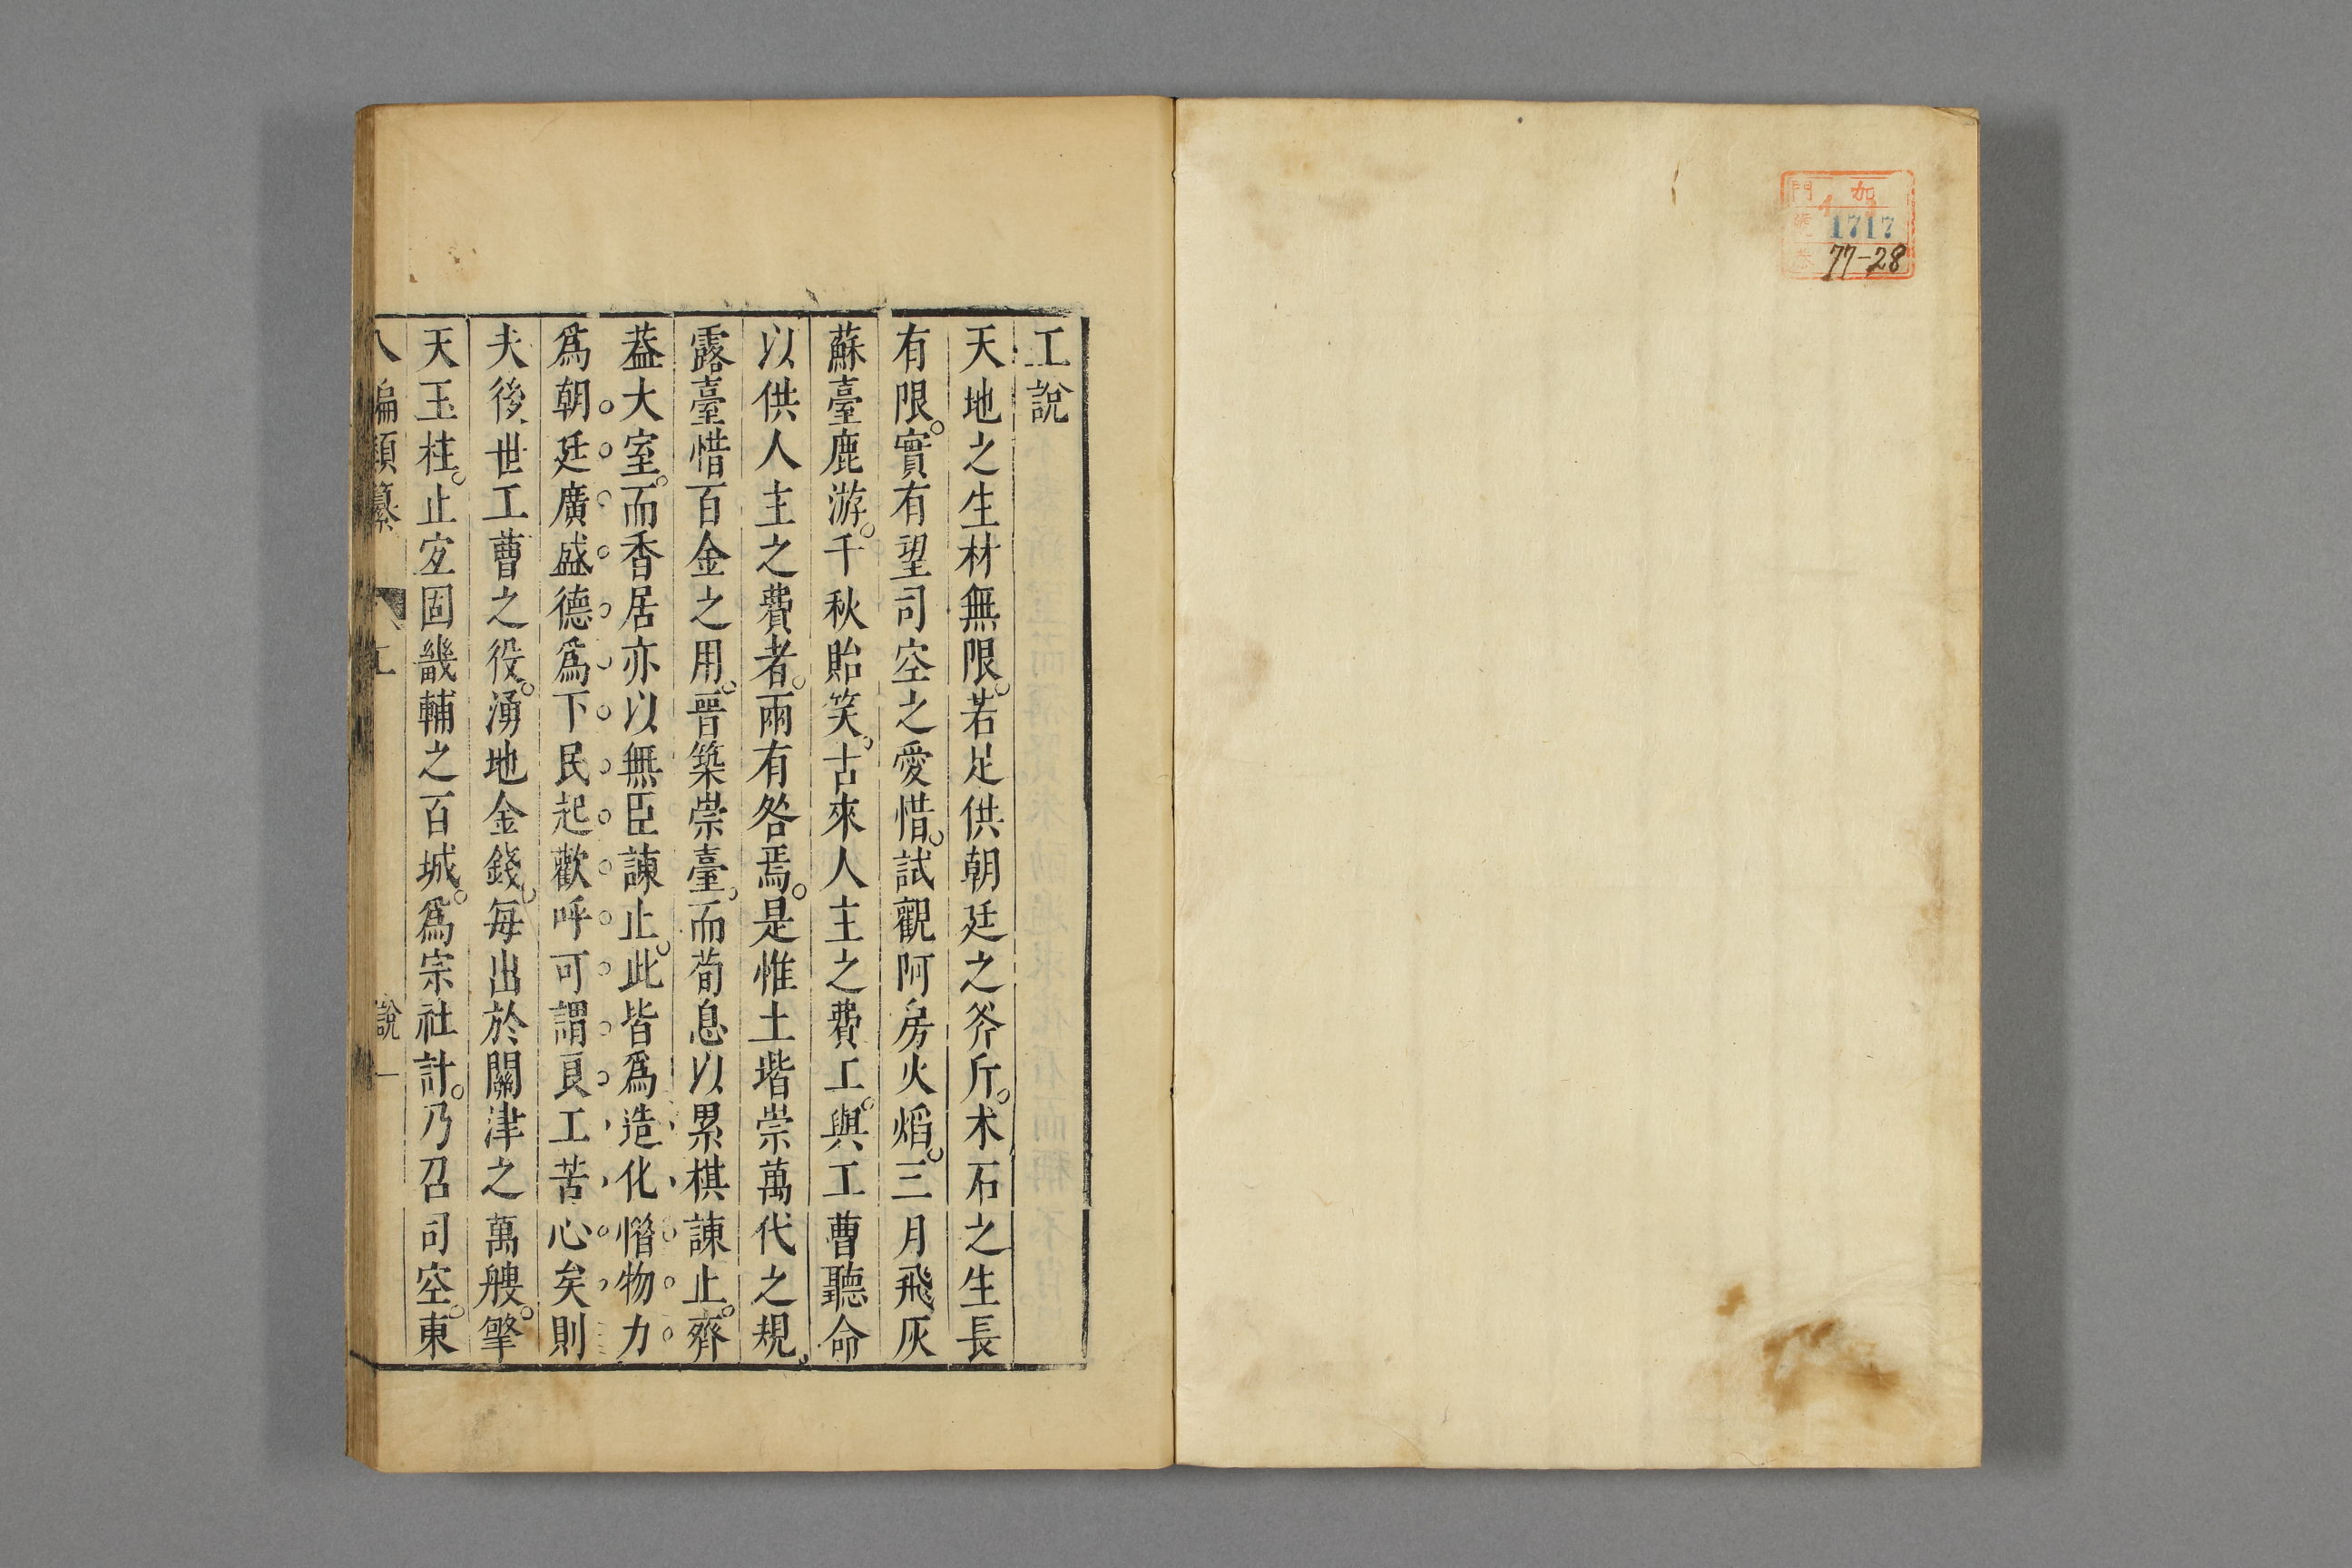 加
門 イ
號 1717
卷 77-28
工說
天地之生材無限。若足供朝廷之斧斤。木石之生長
有限。實有望司空之愛惜。試觀阿房火熖。三月飛灰
蘇臺鹿游。千秋貽笑。古來人主之費工。與工曹聽命
以供人主之費者。兩有咎焉。是惟土堦崇萬代之規、
露臺惜百金之用。晉築崇臺。而荀息以累棋諫止。齊
葢大室。而香居亦以無臣諫止。此皆爲造化惜物力
爲朝廷廣盛德爲下民起歡呼可謂良工苦心矣則
夫後世工曹之役。湧地金錢。每出於關津之萬艘。擎
天玉柱。止定固畿輔之百城。爲宗社計。乃召司空。東
八編類纂 工 說 一